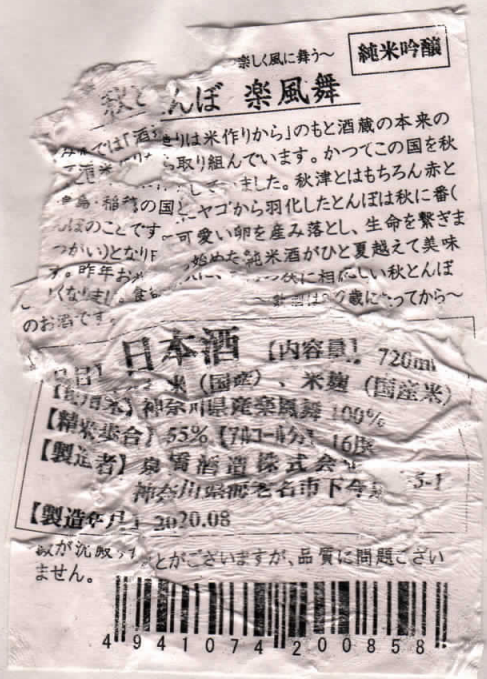 楽しく風に舞う～
純米吟醸
とんぼ 楽風舞
では「酒 りは米作りから」のもと酒蔵の本来の
ら取り組んでいます。かつてこの国を秋
ました。秋津とはもちろん赤と
の国 ヤゴから羽化したとんぼは秋に番(
んぼのことです 可愛い卵を産み落とし、生命を繋ぎま
つがい)となり 始めた純米酒がひと夏越えて美味
す。昨年お い秋とんぼ
くなりまし
のお酒です。 ～お酒は 歳になってから～
日本酒 【内容量】 720ml
米(国産)、米麹(国産米)
神奈川県産楽風舞 100%
【精米歩合】 55% 【アルコール分】 16度
【製造者】 泉橋酒造株式会
神奈川県海老名市下今 5-1
【製造年月】 2020.08
とがございますが、品質に問題ござい
ません。
4 941074 200858